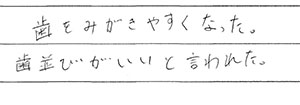 歯をみがきやすくなった。
歯並びがいいと言われた。